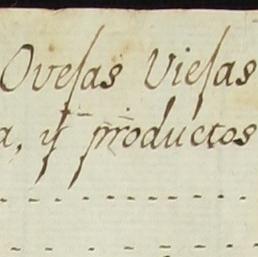 Ovejas Viejas
a, y productos